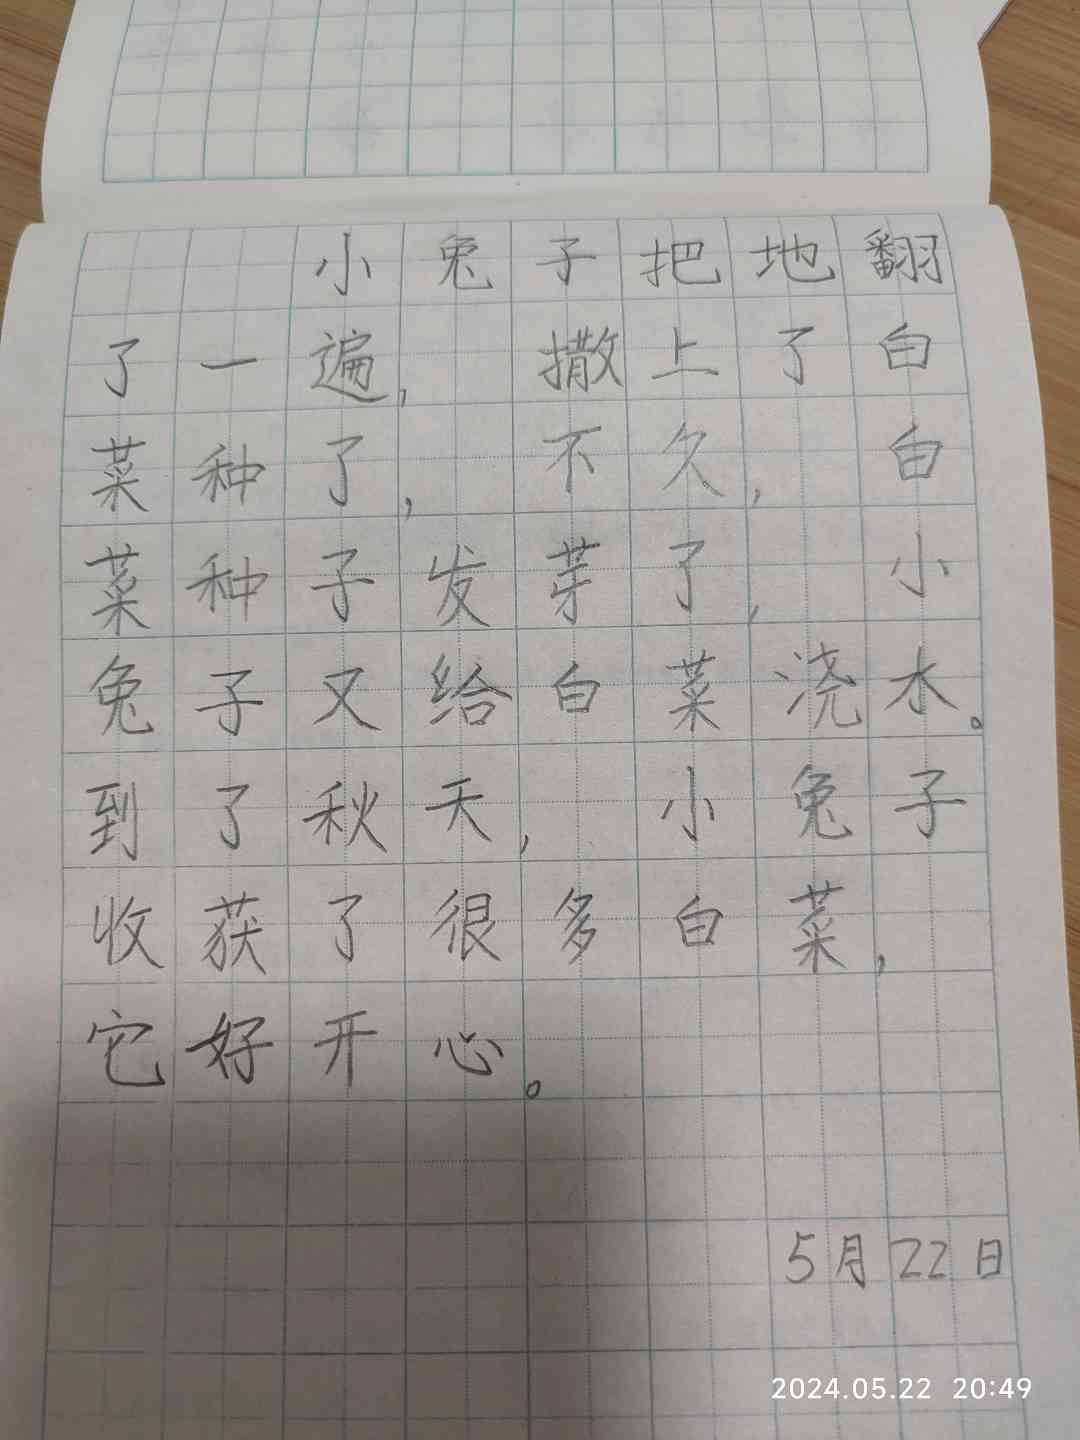 小兔子把地翻
了一遍，撒上了白
菜种了，不久，白
菜种子发芽了，小
兔子又给白菜浇水。
到了秋天，小兔子
收获了很多白菜，
它好开心。
5月22日
2024.05.22 20:49